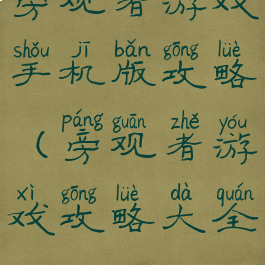 旁观者游戏
shǒu jī bǎn gōng lüè
手机版攻略
páng guān zhě yóu
(旁观者游
xì gōng lüè dà quán
戏攻略大全